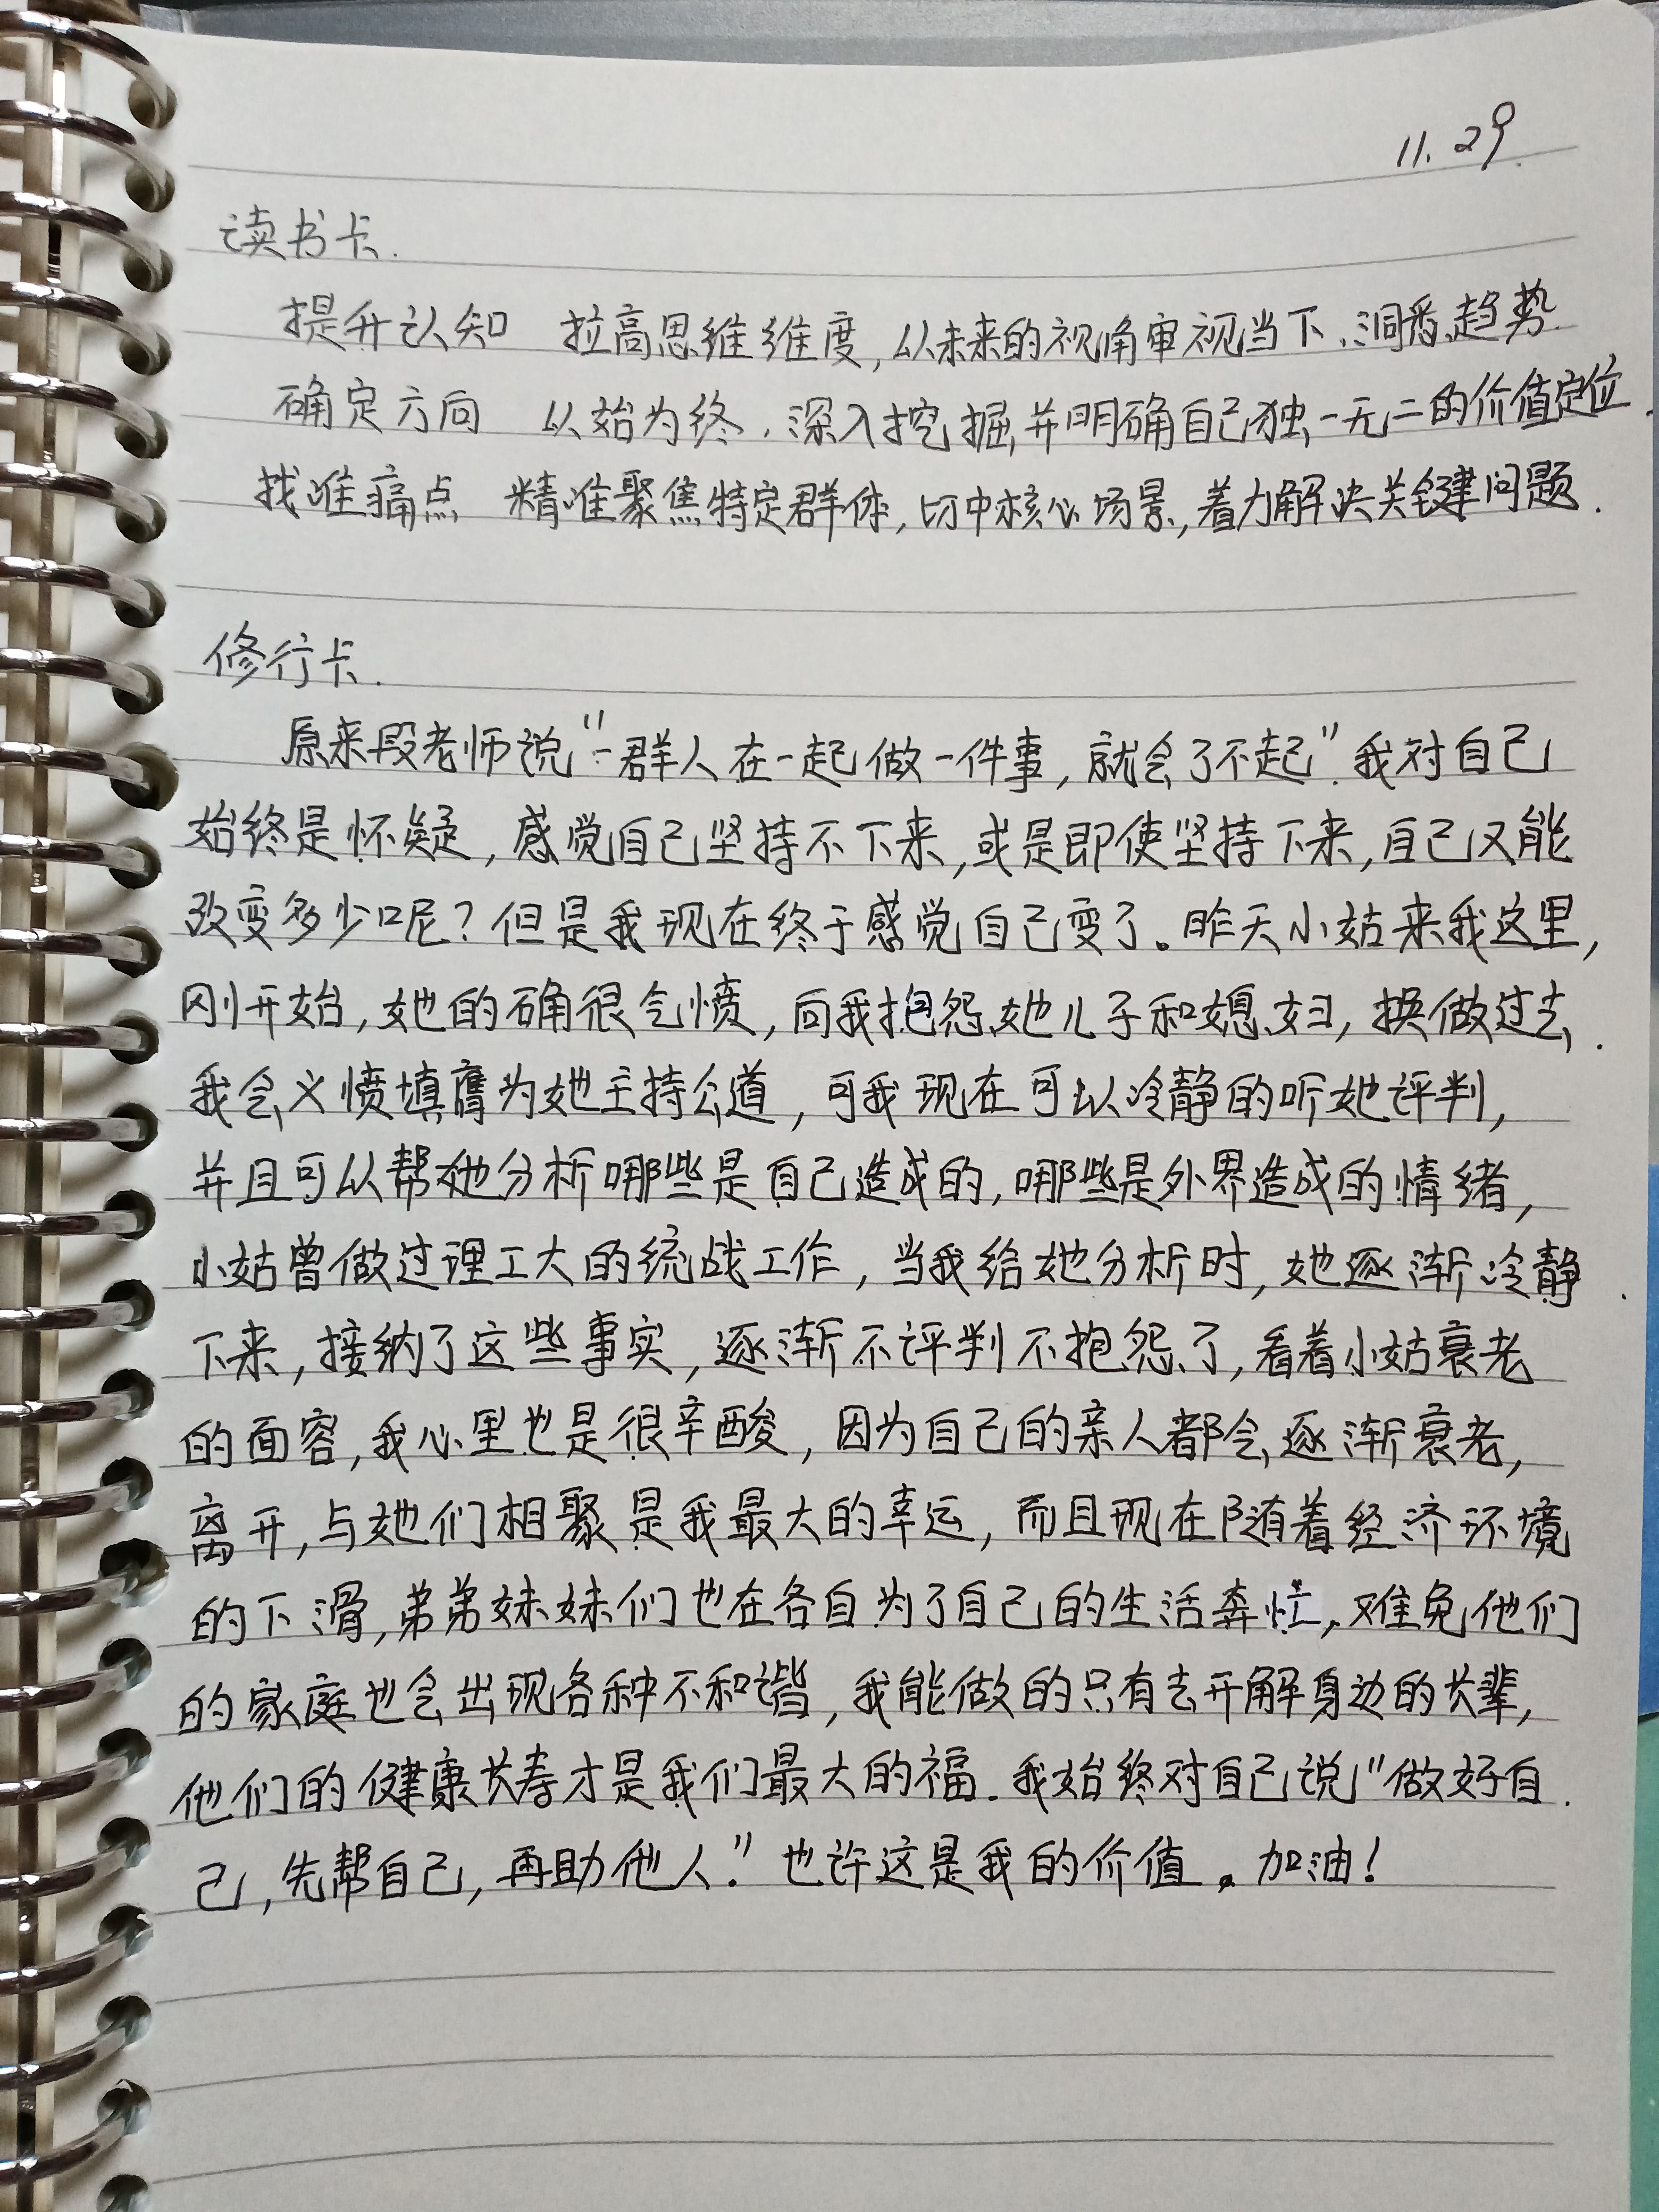 11.29.
读书卡.
提升认知 拉高思维维度,从未来的视角审视当下.洞悉趋势.
确定方向 以始为终.深入挖掘并明确自己独一无二的价值定位.
找准痛点 精准聚焦特定群体,切中核心场景,着力解决关键问题.
修行卡.
原来段老师说“一群人在一起做一件事,就会了不起”.我对自己
始终是怀疑,感觉自己坚持不下来,或是即使坚持下来,自己又能
改变多少呢?但是我现在终于感觉自己变了。昨天小姑来我这里,
刚开始,她的确很气愤,向我抱怨她儿子和媳妇,换做过去.
我会义愤填膺为她主持公道,可我现在可以冷静的听她评判,
并且可以帮她分析哪些是自己造成的,哪些是外界造成的情绪,
小姑曾做过理工大的统战工作,当我给她分析时,她逐渐冷静.
下来,接纳了这些事实,逐渐不评判不抱怨了,看着小姑衰老
的面容,我心里也是很辛酸,因为自己的亲人都会逐渐衰老,
离开,与她们相聚是我最大的幸运,而且现在随着经济环境
的下滑,弟弟妹妹们也在各自为了自己的生活奔忙,难免他们
的家庭也会出现各种不和谐,我能做的只有去开解身边的长辈,
他们的健康长寿才是我们最大的福.我始终对自己说“做好自.
己,先帮自己,再助他人.”也许这是我的价值。加油!